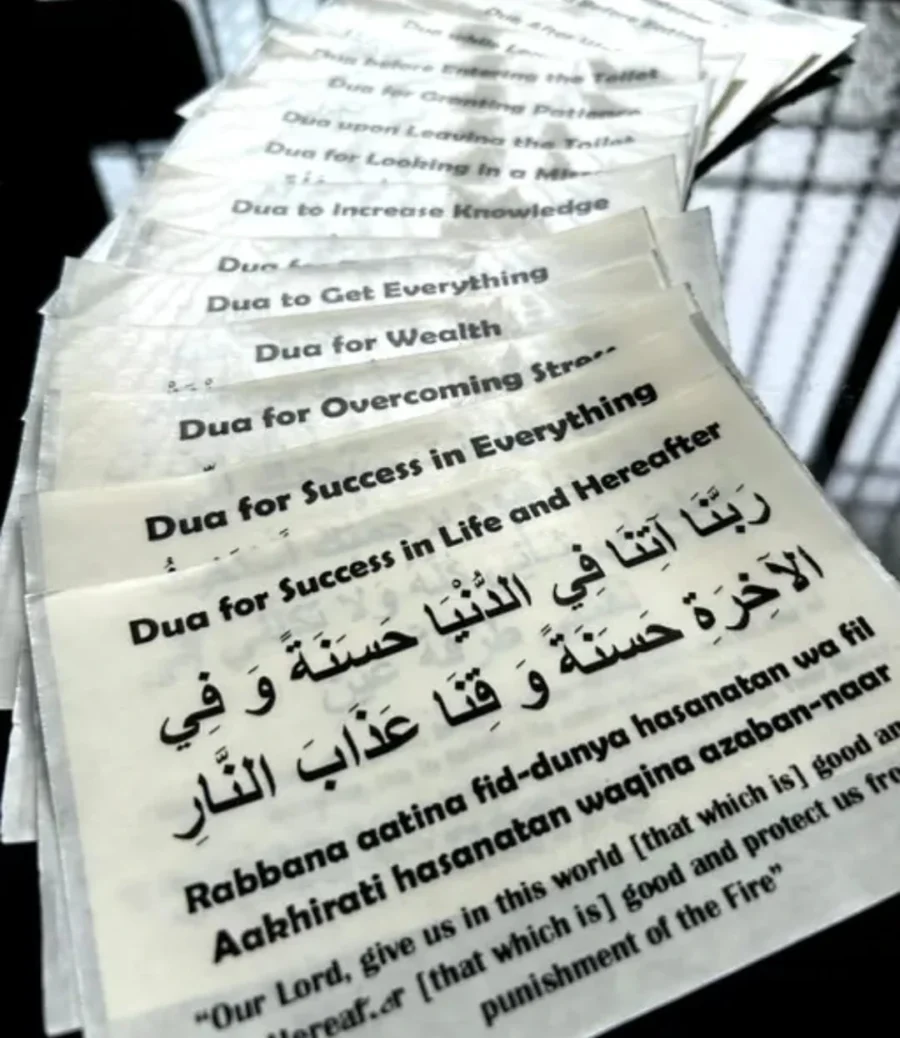 Dua before Entering the Toilet
Dua for Granting Patience
Dua upon Leaving the Toilet
Dua for Looking in a
Dua to Increase Knowledge
Dua
Dua to Get Everything
Dua for Wealth
Dua for Overcoming Stress
Dua for Success in Everything
Dua for Success in Life and Hereafter
رَبَّنَا آتِنَا فِي الدُّنْيَا حَسَنَةً وَ فِي
الآخِرَةِ حَسَنَةً وَ قِنَا عَذَابَ النَّارِ
Rabbana aatina fid-dunya hasanatan wa fil
Aakhirati hasanatan waqina azaban-naar
“Our Lord, give us in this world [that which is] good an
Hereafter [that which is] good and protect us fro
punishment of the Fire”